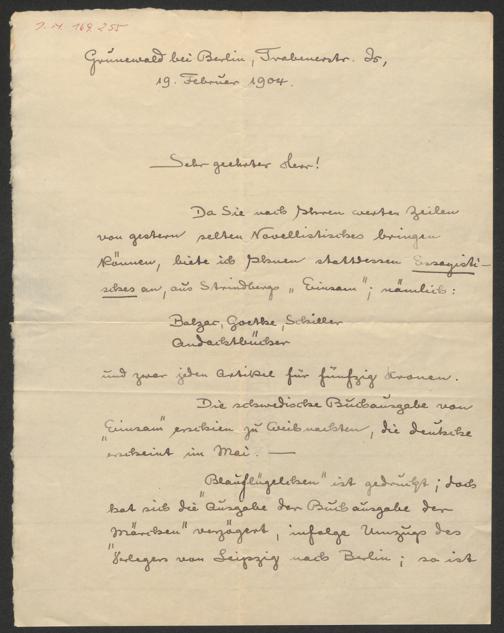 J. N. 169.255
Grunewald bei Berlin, Trabenerstr.
19. Februar 1904.
Sehr geehrter Herr!
Da Sie nach Ihren werten Zeilen
von gestern selten Novellistisches bringen
können, biete ich Ihnen stattdessen Essayisti-
sches an, aus Strindbergs „Einsam"; nämlich:
Balzac, Goethe, Schiller
Andachtbücher
und zwar jeden Artikel für fünfzig Kronen.
Die schwedische Buchausgabe von
„Einsam" erschien zu Weihnachten, die deutsche
erscheint im Mai. —
„Blauflügelchen" ist gedruckt; doch
hat sich die Ausgabe der Buchausgabe der
„Märchen" verzögert, infolge Umzugs des
Verlegers von Leipzig nach Berlin; so ist